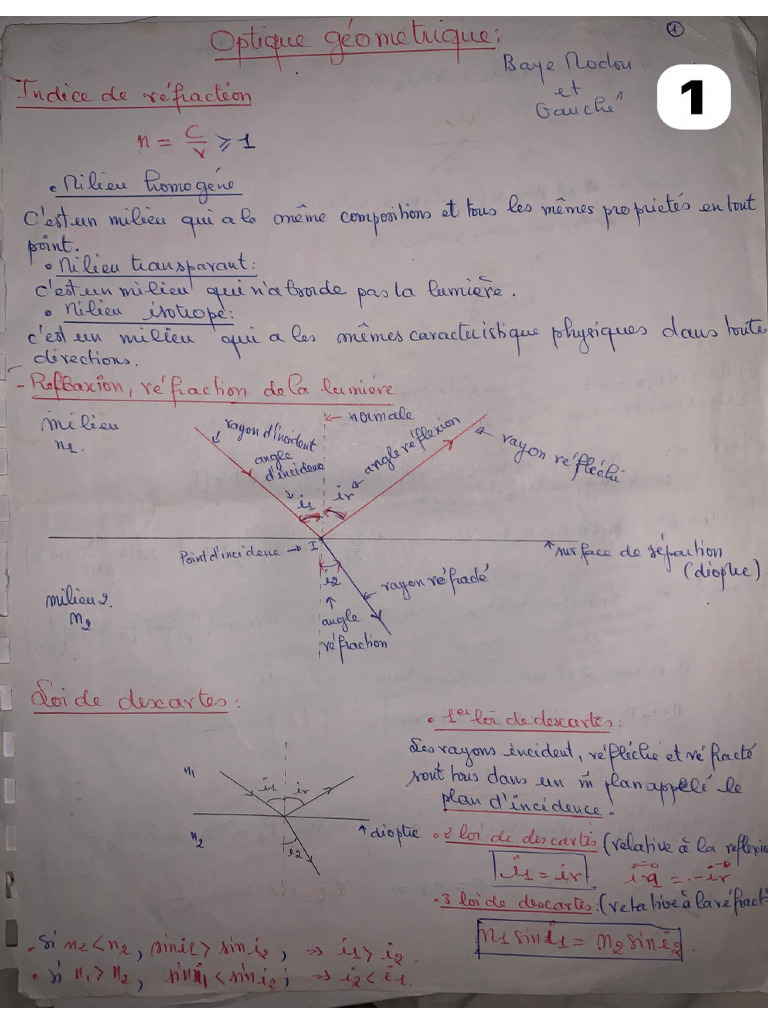 1
Optique géometrique:
Baye Modou
et
Gauche
1
Indice de réfraction
n = C/v ⩾ 1
• Milieu homogéne
C'est un milieu qui a la même compositions et tous les mêmes proprietés en tout
point.
• Milieu transparant:
c'est un milieu qui n'aborde pas la lumière.
• Milieu isotrope:
c'est un milieu qui a les mêmes caractuistique physiques dans toute
directions.
- Reflaxion, réfraction de la lumiére
milieu
n1.
rayon d'incident
angle
d'incidence
← normale
angle réflexion
rayon réfléchi
i1
ir
Point d'incidence → I
surface de séparation
(dioptre)
milieu 2.
n2
i2
rayon réfracté
↑
angle
réfraction
Loi de descartes:
n1
i1
ir
n2
i2
dioptre
• 1er loi de descartes:
Les rayons incident, réfléchie et réfracté
sont tous dans un m̂ plan appélé le
plan d'incidence.
• 2 loi de descartes (relative à la reflexio
i1 = ir
= -ir
• 3 loi de descartes: (retative à la réfract
n1 sin i1 = n2 sin i2
• Si n1 < n2, sin i1 > sin i2, ⇒ i1 > i2.
• Si n1 > n2, sin i1 < sin i2; ⇒ i2 < i1.